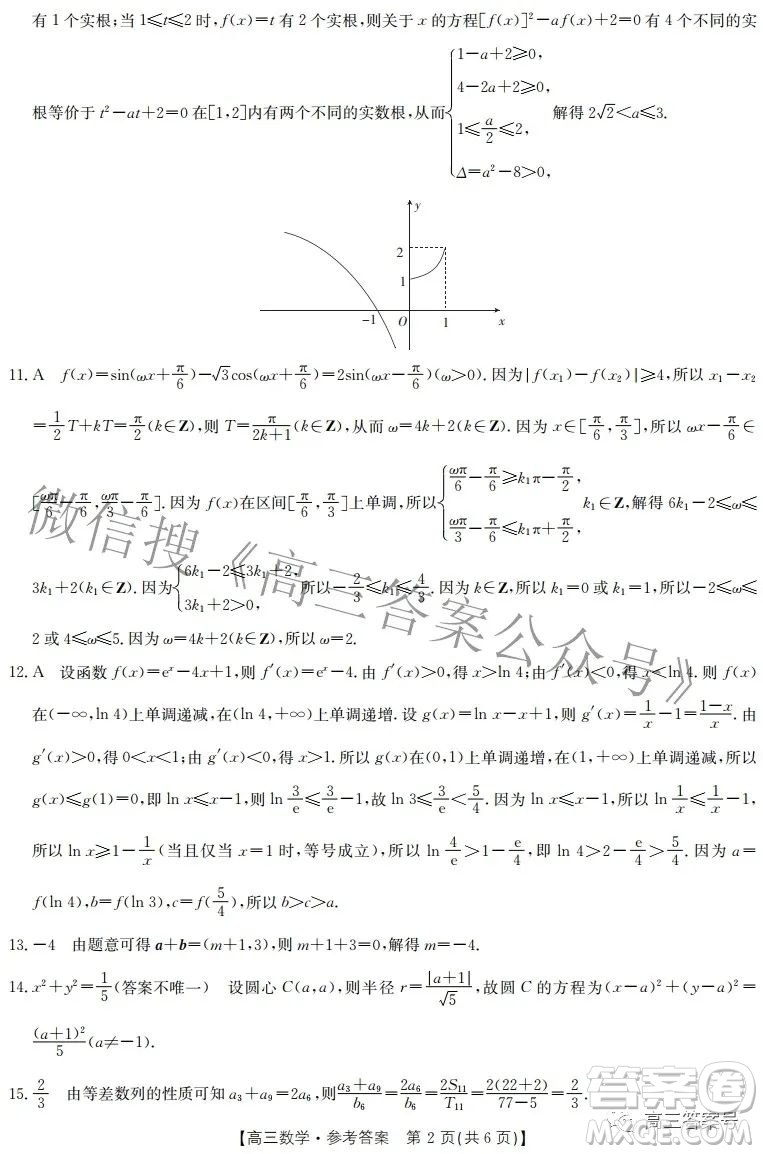 有1个实根;当1⩽t⩽2时,f(x)=t有2个实根,则关于x的方程[f(x)]²-af(x)+2=0有4个不同的实
根等价于t²-at+2=0在[1,2]内有两个不同的实数根,从而{1-a+2⩾0, 4-2a+2⩾0, 1⩽a/2⩽2, Δ=a²-8>0, 解得2√2<a⩽3.
y
2
1
-1 O 1 x
11. A f(x)=sin(ωx+π/6)-√3cos(ωx+π/6)=2sin(ωx-π/6)(ω>0).因为|f(x₁)-f(x₂)|⩾4,所以x₁-x₂
=1/2T+kT=π/2(k∈Z),则T=π/(2k+1)(k∈Z),从而ω=4k+2(k∈Z).因为x∈[π/6,π/3],所以ωx-π/6∈
[ωπ/6-π/6,ωπ/3-π/6].因为f(x)在区间[π/6,π/3]上单调,所以{ωπ/6-π/6⩾k₁π-π/2, ωπ/3-π/6⩽k₁π+π/2, k₁∈Z,解得6k₁-2⩽ω⩽
3k₁+2(k₁∈Z).因为{6k₁-2⩽3k₁+2, 3k₁+2>0, 所以-2/3⩽k⩽4/3.因为k∈Z,所以k₁=0或k₁=1,所以-2⩽ω⩽
2或4⩽ω⩽5.因为ω=4k+2(k∈Z),所以ω=2.
12. A 设函数f(x)=eˣ-4x+1,则f′(x)=eˣ-4.由f′(x)>0,得x>ln 4;由f′(x)<0,得x<ln 4.则f(x)
在(-∞,ln 4)上单调递减,在(ln 4,+∞)上单调递增.设g(x)=ln x-x+1,则g′(x)=1/x-1=(1-x)/x.由
g′(x)>0,得0<x<1;由g′(x)<0,得x>1.所以g(x)在(0,1)上单调递增,在(1,+∞)上单调递减,所以
g(x)⩽g(1)=0,即ln x⩽x-1,则ln 3/e⩽3/e-1,故ln 3⩽3/e<5/4.因为ln x⩽x-1,所以ln 1/x⩽1/x-1,
所以ln x⩾1-1/x(当且仅当x=1时,等号成立),所以ln 4/e>1-e/4,即ln 4>2-e/4>5/4.因为a=
f(ln 4),b=f(ln 3),c=f(5/4),所以b>c>a.
13. -4 由题意可得a+b=(m+1,3),则m+1+3=0,解得m=-4.
14. x²+y²=1/5(答案不唯一) 设圆心C(a,a),则半径r=|a+1|/√5,故圆C的方程为(x-a)²+(y-a)²=
(a+1)²/5(a≠-1).
15. 2/3 由等差数列的性质可知a₃+a₉=2a₆,则(a₃+a₉)/b₆=2a₆/b₆=2S₁₁/T₁₁=2(22+2)/(77-5)=2/3.
【高三数学·参考答案 第2页(共6页)】
微信搜《高三答案公众号》
高三答案号